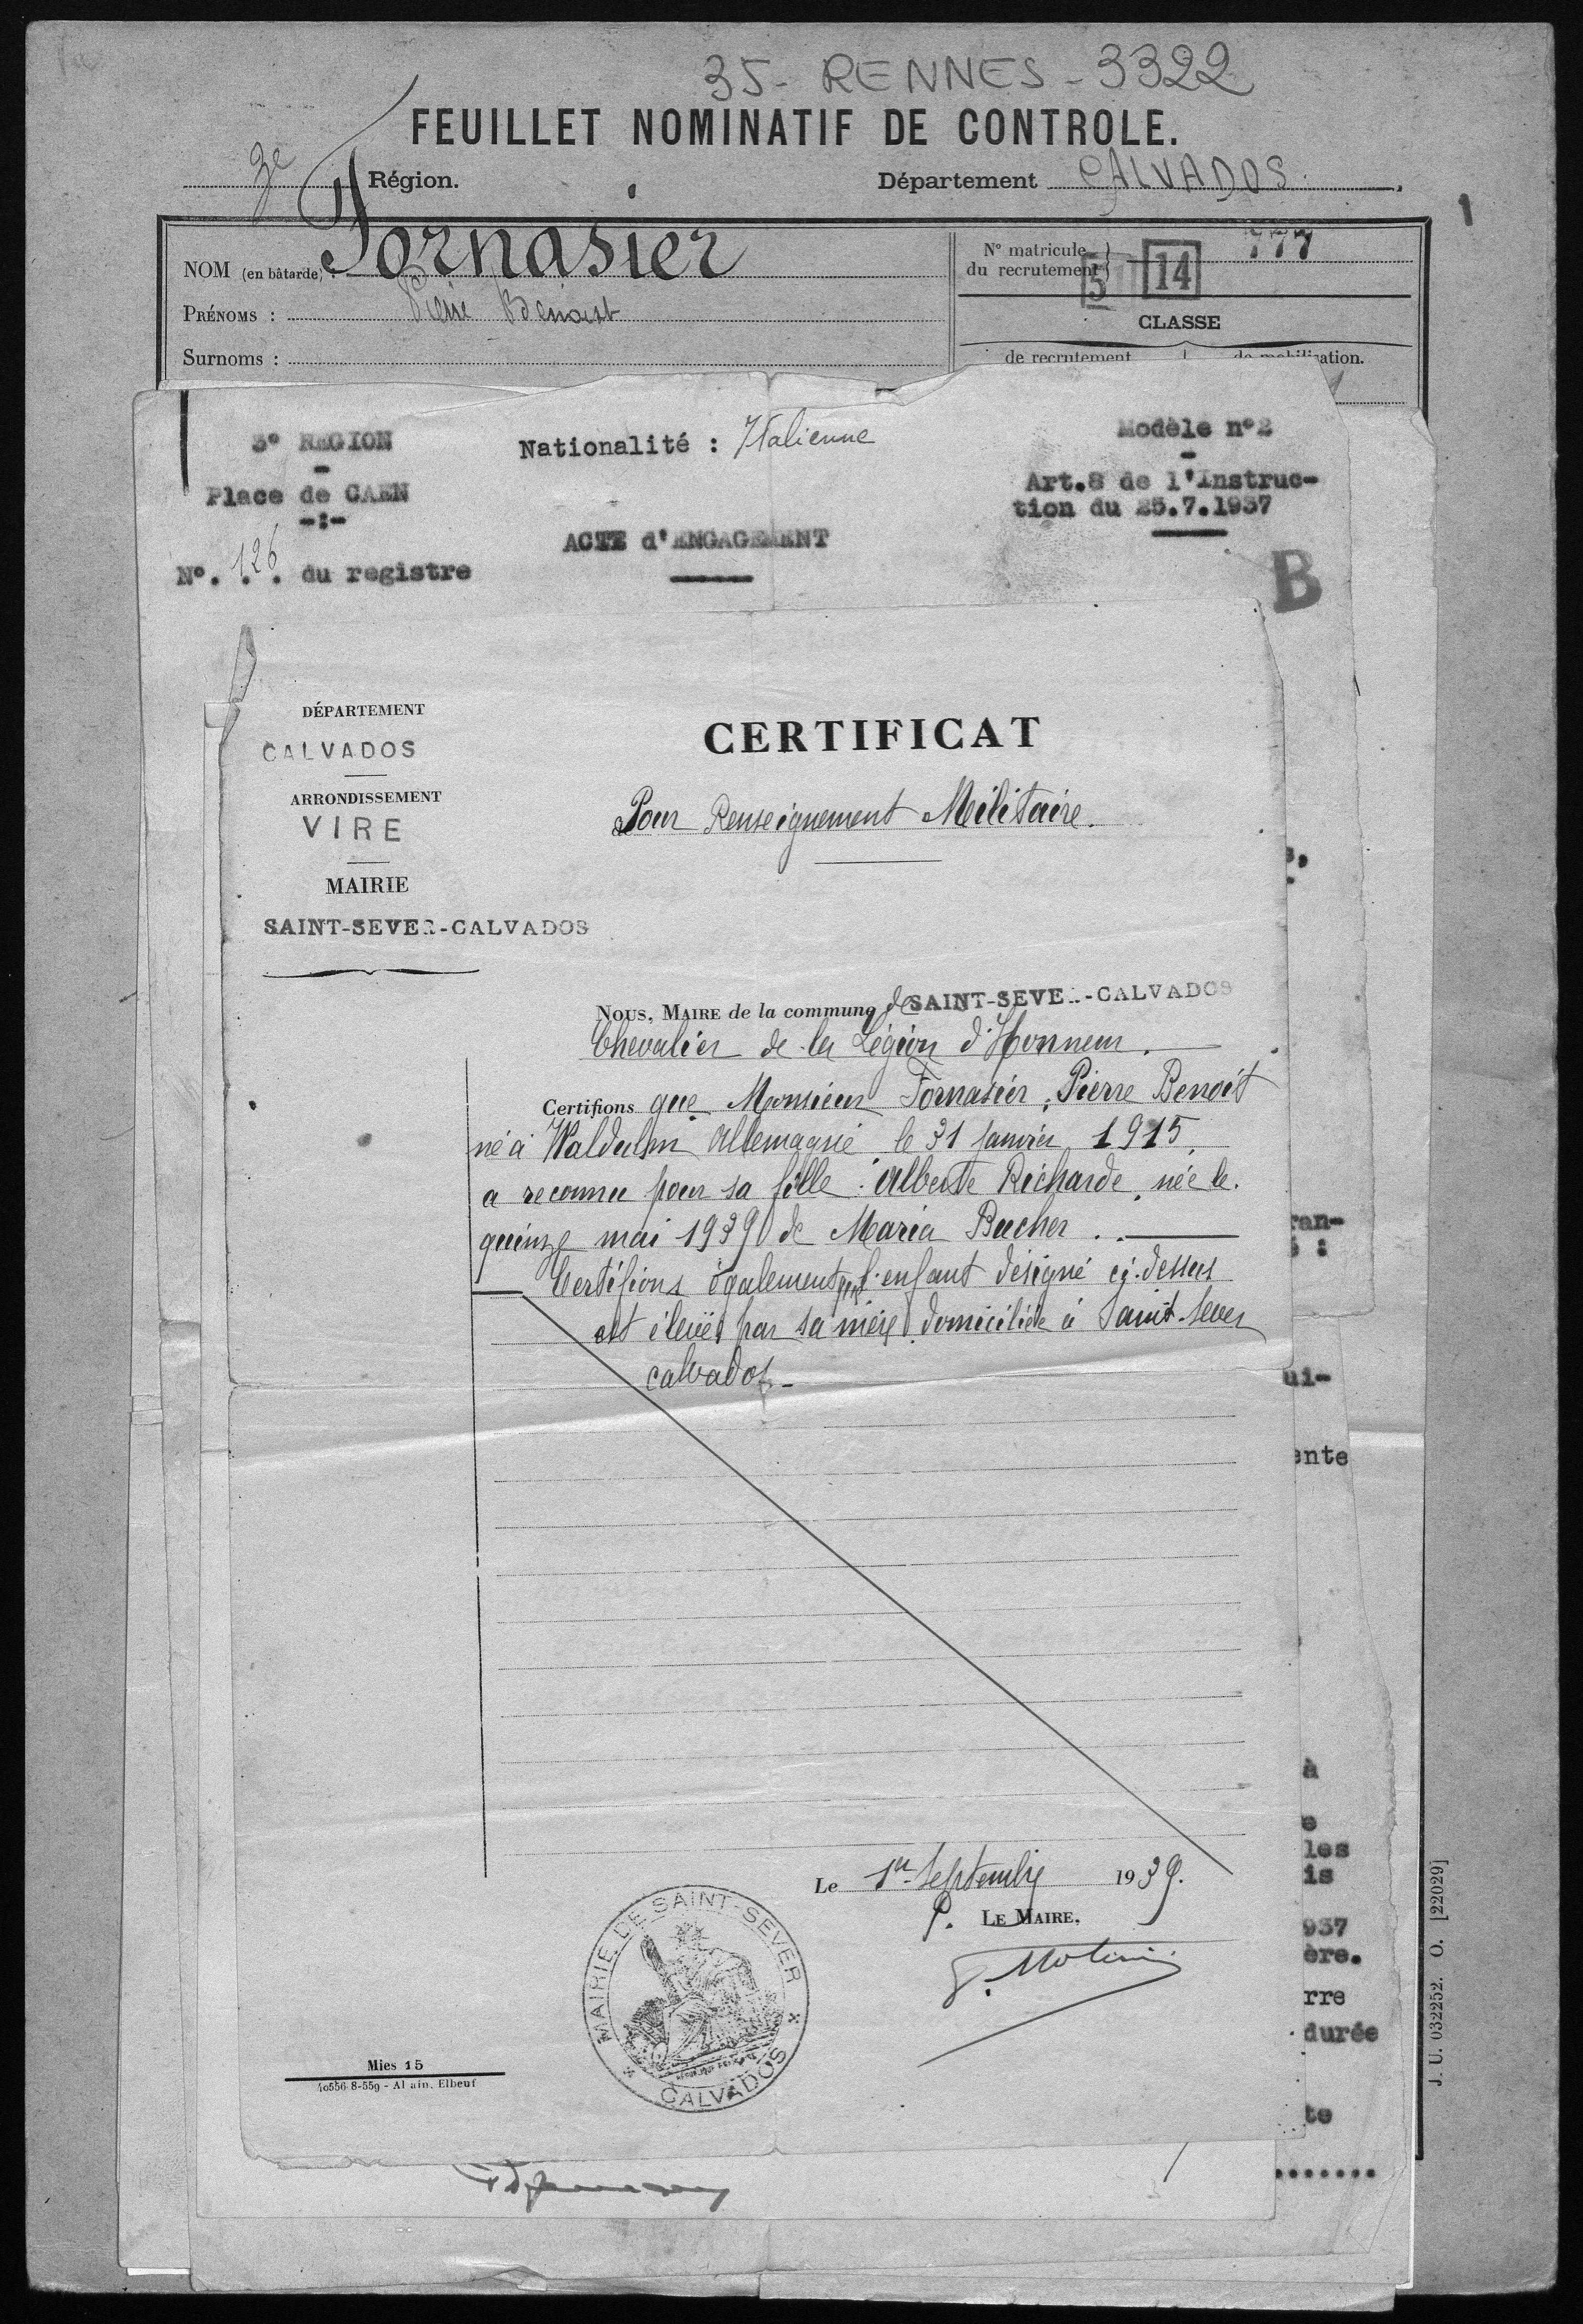 35- RENNES - 3322
FEUILLET NOMINATIF DE CONTROLE.
3e Région.
Département CALVADOS.
1
NOM (en bâtarde) : Fornasier
PRÉNOMS : Pierre Benoist
Surnoms :
N° matricule du recrutement
777
5
14
CLASSE
de recrutement
3e REGION
-
Place de CAEN
-:-
N°. 126 . du registre
Nationalité : Italienne
ACTE d'ENGAGEMENT
Modèle n°2
-
Art.8 de l'Instruc-
tion du 25.7.1937
B
DÉPARTEMENT
CALVADOS
ARRONDISSEMENT
VIRE
MAIRIE
SAINT-SEVER-CALVADOS
CERTIFICAT
Pour Renseignement Militaire.
NOUS, MAIRE de la commune de SAINT-SEVER-CALVADOS
Chevalier de la Légion d'Honneur.
Certifions que Monsieur Fornasier, Pierre Benoît
né à Waldulm Allemagne le 31 janvier 1915,
a reconnu pour sa fille : Alberte Richarde, née le
quinze mai 1939 de Maria Bucher.
Certifions également que l'enfant désigné ci-dessus
est élevée par sa mère domiciliée à Saint-Sever
Calvados-
Le 1er Septembre 1939.
P. LE MAIRE,
MAIRIE DE SAINT-SEVER
CALVADOS
Mies 15
40556 8-559 - Allain, Elbeuf
ran-
ui-
ente
à
e
les
is
937
ère.
rre
durée
te
.......
J. U. 032252. O. [22029]